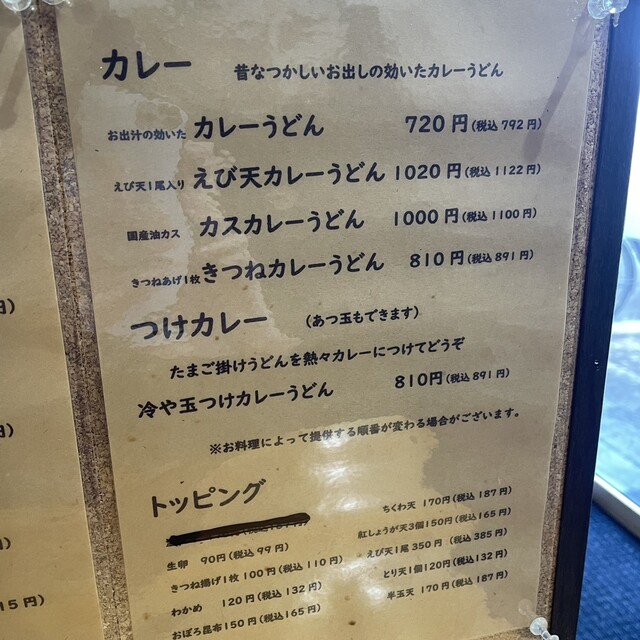 カレー 昔なつかしいお出しの効いたカレーうどん
お出汁の効いた カレーうどん 720円(税込792円)
えび天1尾入り えび天カレーうどん 1020円(税込1122円)
国産油カス カスカレーうどん 1000円(税込1100円)
きつねあげ1枚 きつねカレーうどん 810円(税込891円)
つけカレー (あつ玉もできます)
たまご掛けうどんを熱々カレーにつけてどうぞ
冷や玉つけカレーうどん 810円(税込891円)
※お料理によって提供する順番が変わる場合がございます。
トッピング
生卵 90円(税込99円)
きつね揚げ1枚100円(税込110円)
わかめ 120円(税込132円)
おぼろ昆布150円(税込165円)
ちくわ天 170円(税込187円)
紅しょうが天3個150円(税込165円)
えび天1尾350円(税込385円)
とり天1個120円(税込132円)
半玉天 170円(税込187円)
円)
円)
円)
15円)